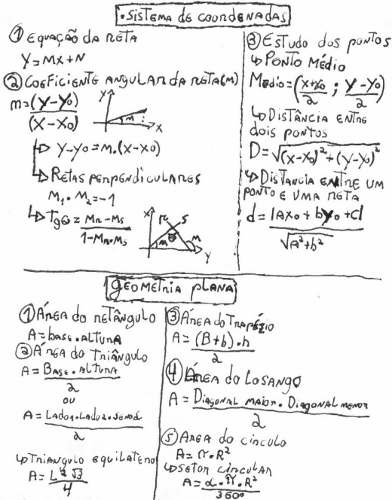 • Sistema de coordenadas
① Equação da reta
Y = MX + N
② Coeficiente angular da reta (m)
m = (Y - Y₀)
(X - X₀)
Y
m
X
↳ Y - Y₀ = M.(X - X₀)
↳ Retas perpendiculares
M₁ • M₂ = -1
↳ Tgθ = Mr - Ms
1 - Mr • Ms
X
r
s
θ
M
M
Y
③ Estudo dos pontos
↳ Ponto Médio
Medio = (X+X₀ ; Y - Y₀)
2 2
↳ Distância entre
dois pontos
D = √(X - X₀)² + (Y - Y₀)²
↳ Distancia entre um
ponto e uma reta
d = |ax₀ + by₀ + c|
√a² + b²
Geometria plana
① Área do retângulo
A = base • altura
② Área do triângulo
A = Base • altura
2
ou
A = Lado1 • Lado2 • senθ
2
↳ Triangulo equilatero
A = L² √3
4
③ Área do Trapézio
A = (B + b) • h
2
④ Área do Losango
A = Diagonal maior • Diagonal menor
2
⑤ Area do círculo
A = π • R²
↳ Setor circular
A = α • π • R²
360°